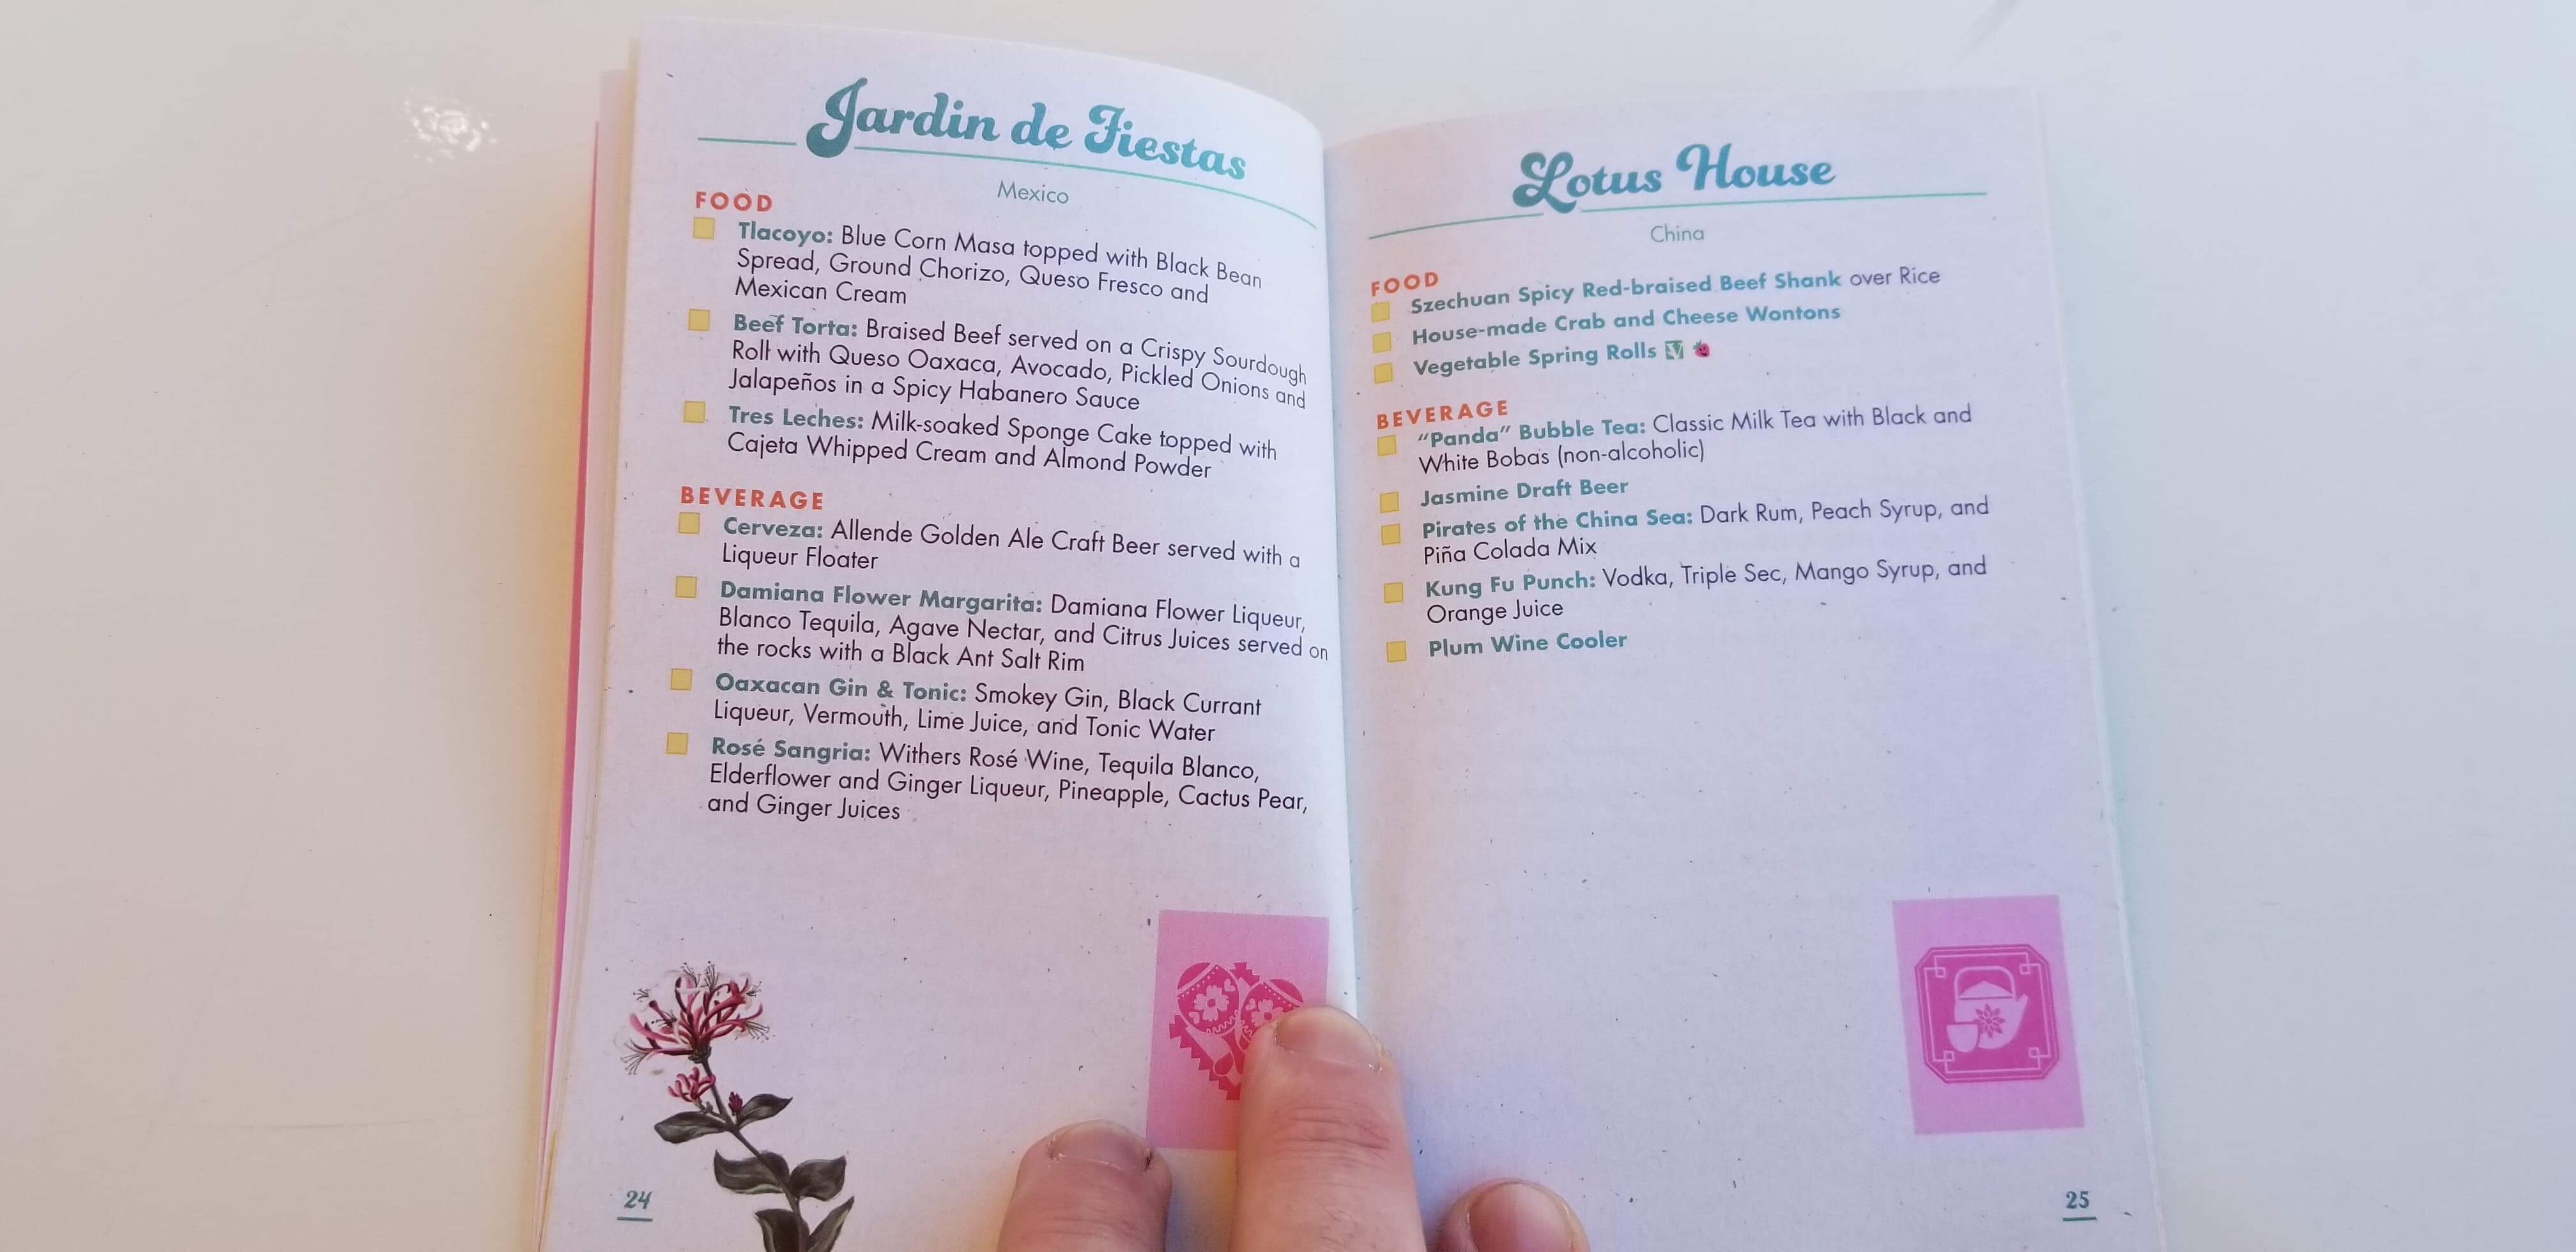 Jardin de Fiestas
Mexico
FOOD
Tlacoyo: Blue Corn Masa topped with Black Bean
Spread, Ground Chorizo, Queso Fresco and
Mexican Cream
Beef Torta: Braised Beef served on a Crispy Sourdough
Roll with Queso Oaxaca, Avocado, Pickled Onions and
Jalapeños in a Spicy Habanero Sauce
Tres Leches: Milk-soaked Sponge Cake topped with
Cajeta Whipped Cream and Almond Powder
BEVERAGE
Cerveza: Allende Golden Ale Craft Beer served with a
Liqueur Floater
Damiana Flower Margarita: Damiana Flower Liqueur,
Blanco Tequila, Agave Nectar, and Citrus Juices served on
the rocks with a Black Ant Salt Rim
Oaxacan Gin & Tonic: Smokey Gin, Black Currant
Liqueur, Vermouth, Lime Juice, and Tonic Water
Rosé Sangria: Withers Rosé Wine, Tequila Blanco,
Elderflower and Ginger Liqueur, Pineapple, Cactus Pear,
and Ginger Juices
24
Lotus House
China
FOOD
Szechuan Spicy Red-braised Beef Shank over Rice
House-made Crab and Cheese Wontons
Vegetable Spring Rolls V
BEVERAGE
"Panda" Bubble Tea: Classic Milk Tea with Black and
White Bobas (non-alcoholic)
Jasmine Draft Beer
Pirates of the China Sea: Dark Rum, Peach Syrup, and
Piña Colada Mix
Kung Fu Punch: Vodka, Triple Sec, Mango Syrup, and
Orange Juice
Plum Wine Cooler
25